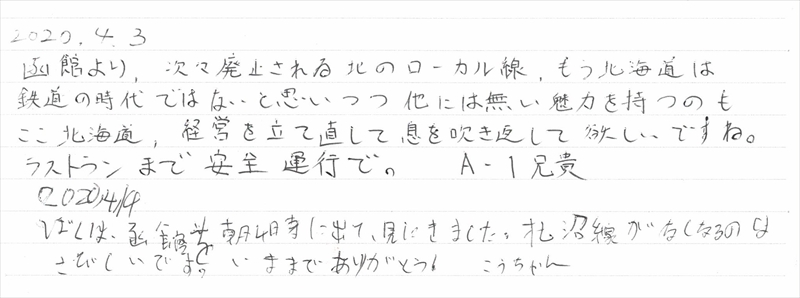 2020.4.3
函館より，次々廃止される北のローカル線，もう北海道は
鉄道の時代ではないと思いつつ他には無い魅力を持つのも
ここ北海道，経営を立て直して息を吹き返して欲しいですね。
ラストランまで安全運行で。 A-1兄貴
2020/4/4
ぼくは、函館を朝4時に出て、見にきました。札沼線がなくなるのは
さびしいです。いままでありがとう! こうちゃん